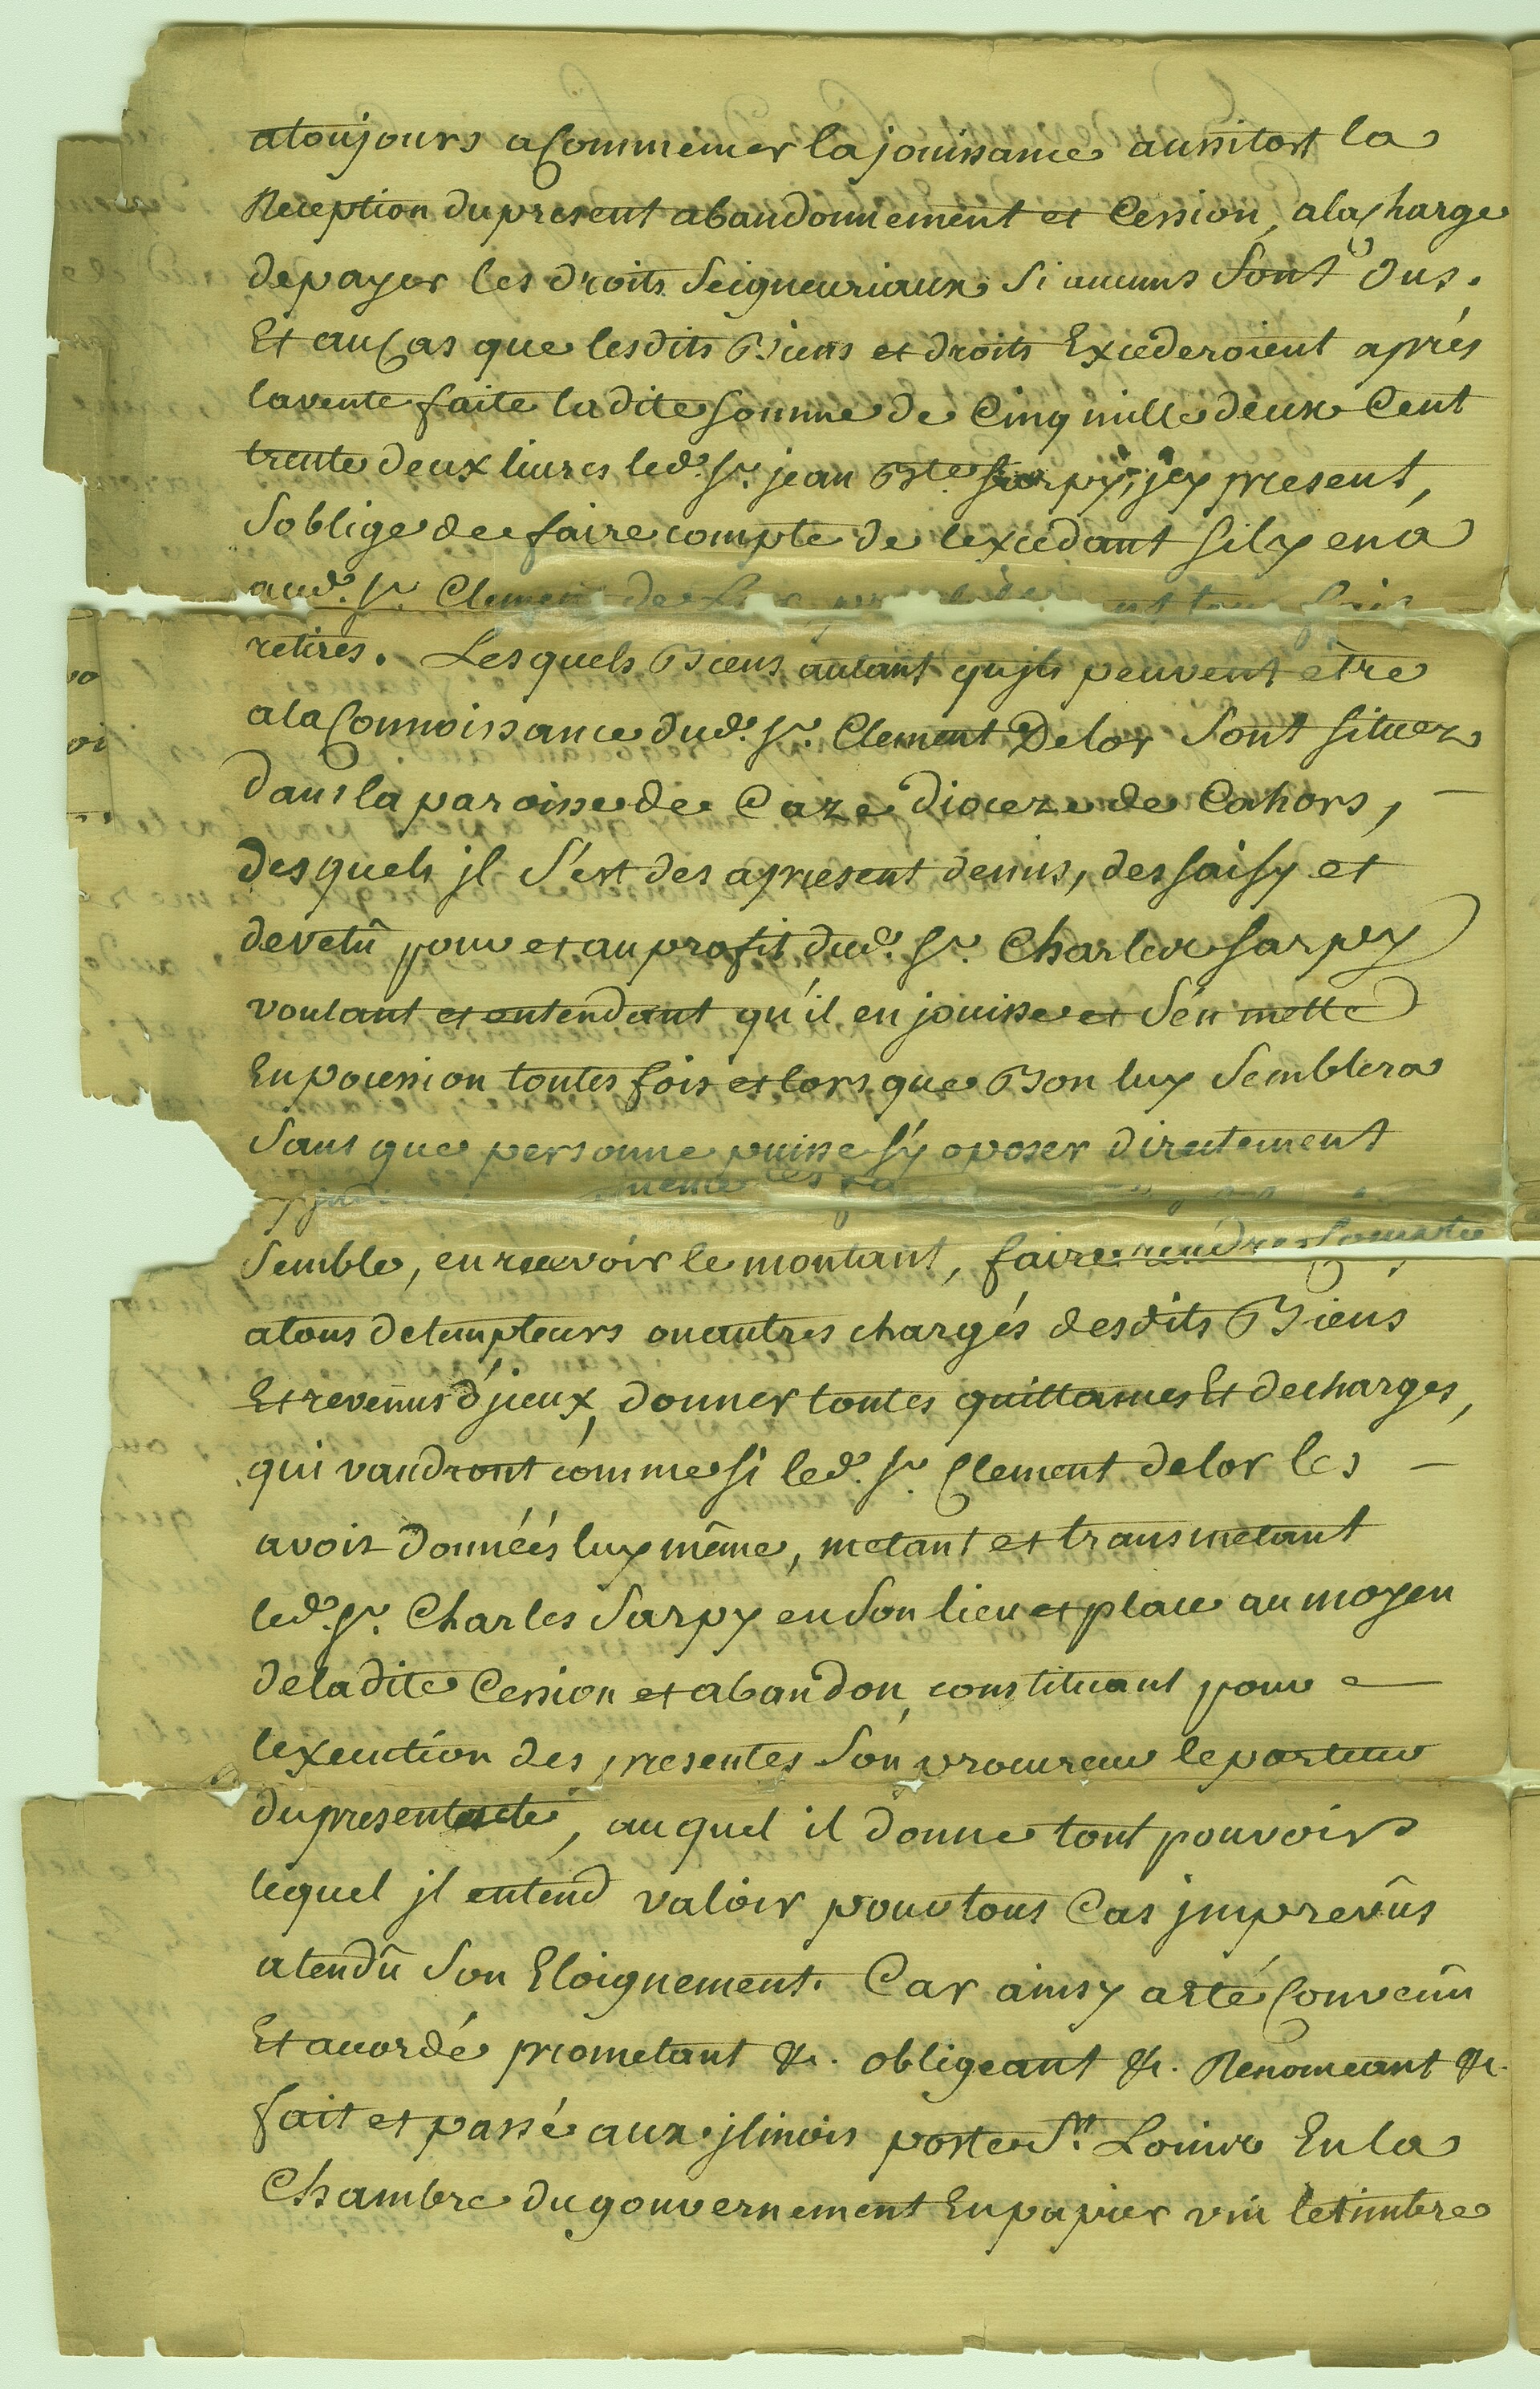 atoujours aCommencer lajouissance aussitost la
Reception dupresent abandonnement et Cession, alaCharge
depayer les droits Seigneuriaux Si aucuns Sont Dus.
Et auCas que lesdits Biens et droits Excederoient aprés
lavente faite ladite Somme de Cinq mille deux Cent
trente deux livres led. Sr. jean Bte. Sarpy, jcy present,
Soblige de faire compte de lexcedant Silyena
aud. Sr. Clement de
retires. Lesquels Biens autant qujls peuvent être
ala Connoissance dud. Sr. Clement Delor Sont situez
dans la paroisse de Caze dioceze de Cahors,
desquels jl S'est des apresent demis, des saisy et
devetû pour et au profit dud. Sr. Charles Sarpy
voulant et entendant qu'il en jouisse et S'en mette
En possession toutes fois et lors que Bon luy Semblera
Sans que personne puisse S'y oposer directement
Semble, en recevoir le montant, faire rendre Compte
atous detempteurs ou autres chargés desdits Biens
Et revenus d'jceux, donner toutes quittances Et decharges,
qui vaudront comme si led. Sr. Clement delor les
avoit données luy même, metant et transmetant
led. Sr. Charles Sarpy en Son lieu et place au moyen
deladite Cession et abandon, constituant pour
lexecution des presentes Son procureur leporteur
dupresent acte, auquel il donne tout pouvoirs
lequel jl entend valoir pour tous Cas jmprevûs
atendû Son Eloignement. Car ainsy a eté Convenû
Et acordé prometant &c. obligeant &c. Renonceant &c.
fait et passé aux jlinois poste St. Louis En la
Chambre du gouvernement En papier vin le timbre